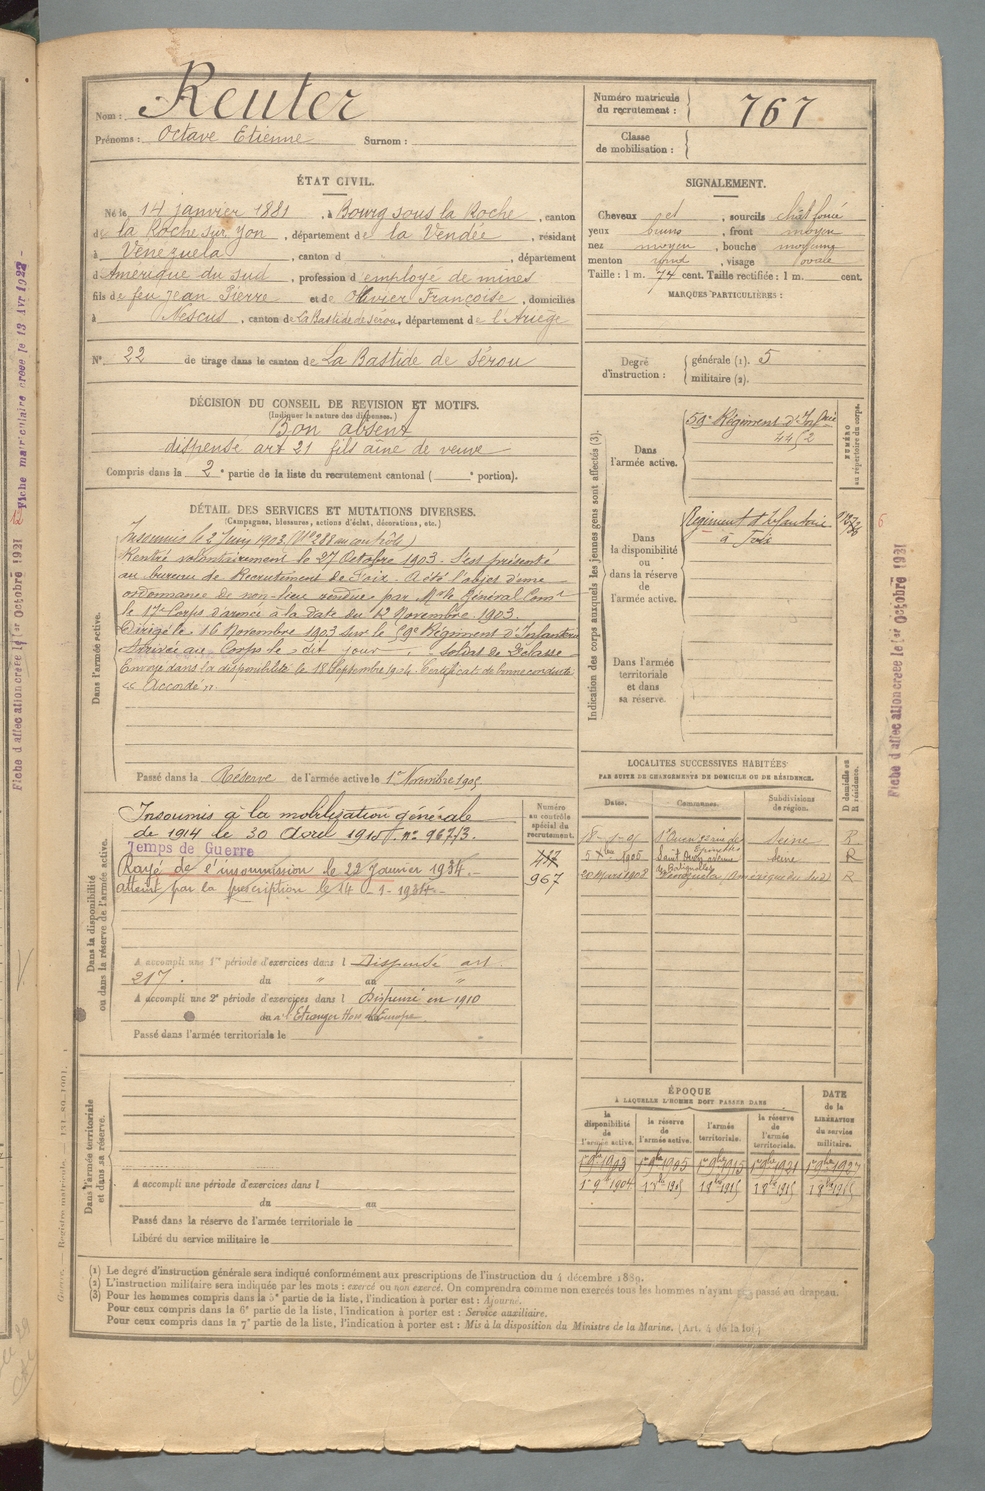 Nom : Reuter
Prénoms : Octave Etienne Surnom :
Numéro matricule du recrutement : 767
Classe de mobilisation :
ÉTAT CIVIL.
Né le 14 janvier 1881, à Bourg sous la Roche, canton
de la Roche sur Yon, département de la Vendée, résidant
à Venezuela, canton d , département
d Amérique du Sud, profession d employé de mines
fils de feu Jean Pierre et de Olivier Françoise, domiciliés
à Nescus, canton de La Bastide de Sérou, département de l'Ariège
N° 22 de tirage dans le canton de La Bastide de Sérou
SIGNALEMENT.
Cheveux et , sourcils chât foncé
yeux bruns , front moyen
nez moyen , bouche moyenne
menton rond , visage ovale
Taille : 1 m. 74 cent. Taille rectifiée : 1 m. cent.
MARQUES PARTICULIÈRES :
Degré d'instruction : générale (1). 5
militaire (2).
DÉCISION DU CONSEIL DE REVISION ET MOTIFS.
(Indiquer la nature des dispenses.)
Bon absent
dispensé art 21 fils aîné de veuve
Compris dans la 2e partie de la liste du recrutement cantonal ( e portion).
DÉTAIL DES SERVICES ET MUTATIONS DIVERSES.
(Campagnes, blessures, actions d'éclat, décorations, etc.)
Dans l'armée active.
Insoumis le 2 Juin 1903. (N° 288 au contrôle)
Rentré volontairement le 27 Octobre 1903. S'est présenté
au bureau de Recrutement de Foix. A été l'objet d'une
ordonnance de non-lieu rendue par Mr le Général Comt
le 17e Corps d'armée à la date du 12 Novembre 1903.
Dirigé le 16 Novembre 1903 sur le 59e Régiment d'Infanterie
Arrivé au Corps le dit jour. Soldat de 2e classe
Envoyé dans la disponibilité le 18 Septembre 1904. Certificat de bonne conduite
« Accordé ».
Passé dans la Réserve de l'armée active le 1er Novembre 1905
Indication des corps auxquels les jeunes gens sont affectés (3).
Dans l'armée active.
59e Régiment d'Inf
NUMÉRO au répertoire du corps.
Dans la disponibilité ou dans la réserve de l'armée active.
Régiment d'Infanterie
à Foix
Dans l'armée territoriale et dans sa réserve.
LOCALITES SUCCESSIVES HABITÉES
PAR SUITE DE CHANGEMENTS DE DOMICILE OU DE RÉSIDENCE.
Dates. Communes. Subdivisions de région. D domicile ou R résidence.
St Ouen Seine R
1905 Saint Ouen Seine R
20 Mars 1908 Venezuela, Amérique du Sud R
Dans la disponibilité ou dans la réserve de l'armée active.
Numéro au contrôle spécial du recrutement.
Insoumis à la mobilisation générale
de 1914 le 30 Avril 1915. n° 967/3.
Temps de Guerre
967
Rayé de l'insoumission le 22 janvier 1934.
atteint par la prescription le 14 - 1 - 1934
A accompli une 1re période d'exercices dans l Dispensé art.
217. du " au "
A accompli une 2e période d'exercices dans l Dispensé en 1910
du à l'Etranger Hors d'Europe.
Passé dans l'armée territoriale le
Dans l'armée territoriale et dans sa réserve.
A accompli une période d'exercices dans l
du au
Passé dans la réserve de l'armée territoriale le
Libéré du service militaire le
ÉPOQUE
À LAQUELLE L'HOMME DOIT PASSER DANS
DATE de la LIBÉRATION du service militaire.
la disponibilité de l'armée active. la réserve de l'armée active. l'armée territoriale. la réserve de l'armée territoriale.
1er 9bre 1903 1er 9bre 1905 1er 9bre 1915 1er 9bre 1921 1er 9bre 1927
1er 9 1904
(1) Le degré d'instruction générale sera indiqué conformément aux prescriptions de l'instruction du 4 décembre 1889.
(2) L'instruction militaire sera indiquée par les mots : exercé ou non exercé. On comprendra comme non exercés tous les hommes n'ayant pas passé au drapeau.
(3) Pour les hommes compris dans la 5e partie de la liste, l'indication à porter est : Ajourné.
Pour ceux compris dans la 6e partie de la liste, l'indication à porter est : Service auxiliaire.
Pour ceux compris dans la 7e partie de la liste, l'indication à porter est : Mis à la disposition du Ministre de la Marine. (Art. 4 de la loi)
Fiche d affectation creee le 1er Octobre 1921
Fiche matriculaire creee le 13 Avr 1922
Fiche d affectation creee le 1er Octobre 1921
Registre matricule.